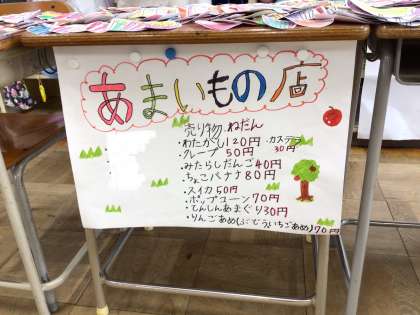 あまいもの店
売り物 ねだん
・わたがし120円 カステラ
・クループ 50円 30円
・みたらしだんご40円
・ちょこバナナ80円
・スイカ50円
・ポップコーン70円
・てんしんあまぐり30円
・りんごあめ(ぶどういちごあめ)70円